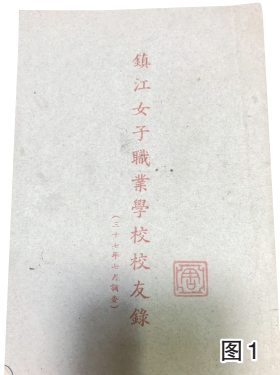 鎮江女子職業學校校友錄
(三十七年七月調查)
图1